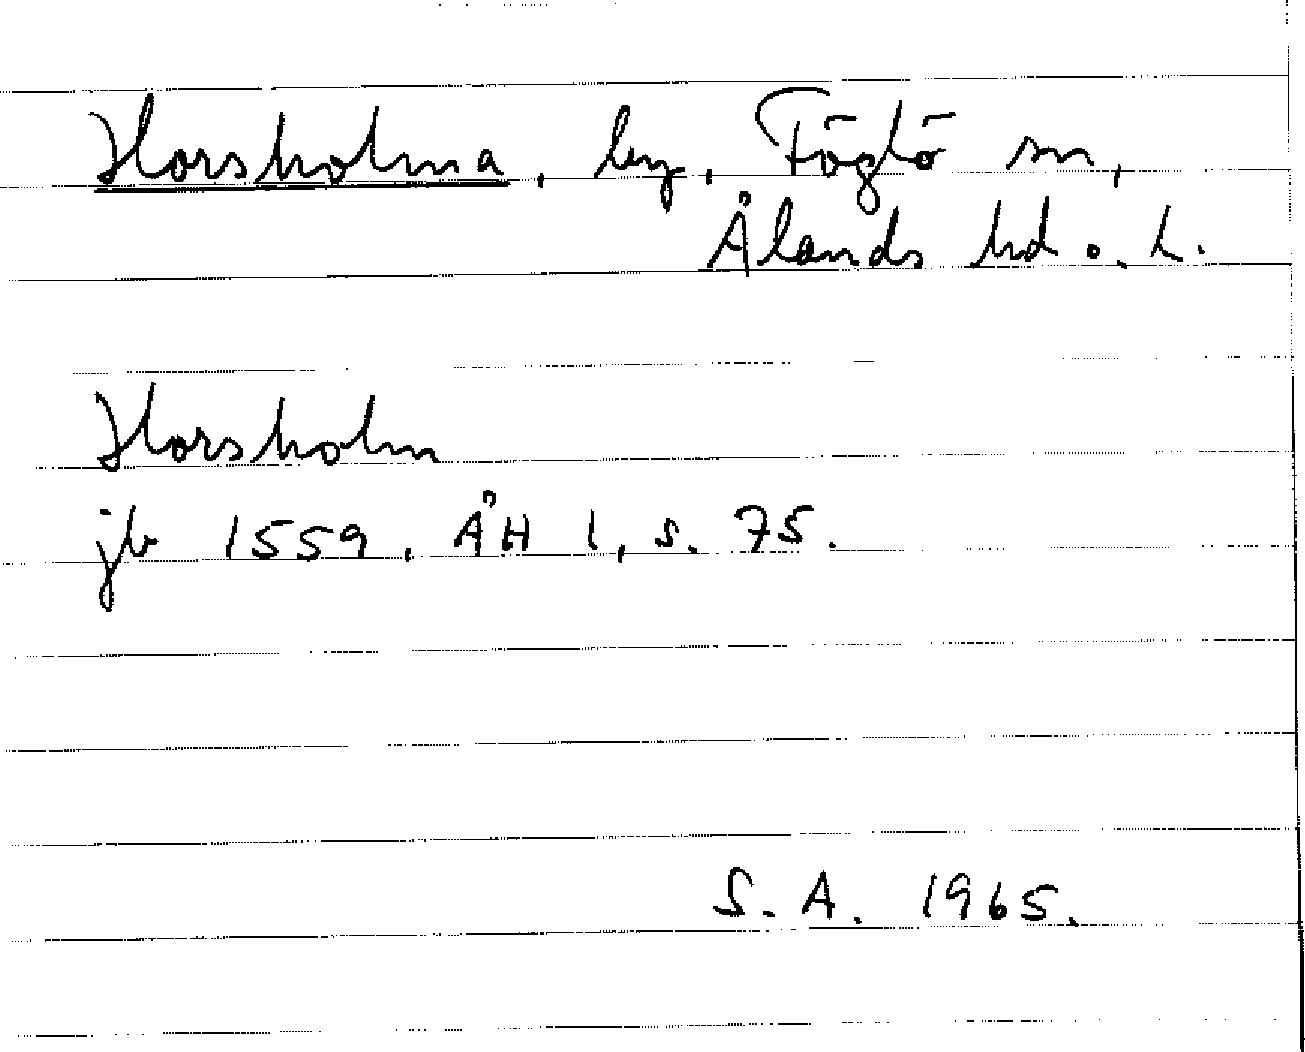 Horsholma, by, Föglö sn,
Ålands hd o. L.
Horsholm
jb 1559, ÅH 1, s. 75.
S. A. 1965.